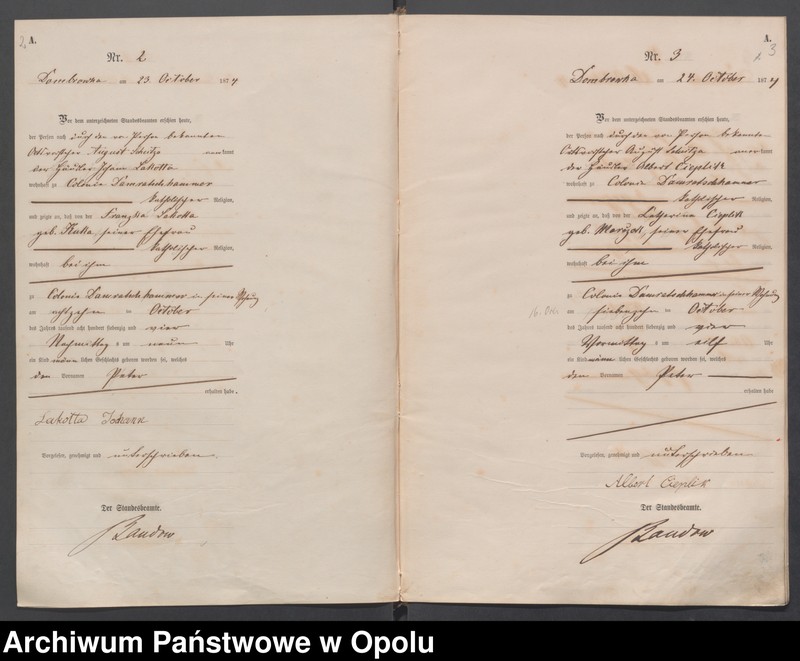 2.
A.
Nr. 2
Dombrowka am 23. October 1874
Vor dem unterzeichneten Standesbeamten erschien heute,
der Person nach durch den von Person bekannten
Ortsvorsteher August anerkannt
der Häusler Johann Lakotta
wohnhaft zu Colonie Damratschhammer
katholischer Religion,
und zeigte an, daß von der Franzka Lakotta
geb. seiner Ehefrau
katholischer Religion,
wohnhaft bei ihm
zu Colonie Damratschhammer in seiner Wohnung
am achtzehn ten October
des Jahres tausend acht hundert siebenzig und vier
Nachmittag s um neun Uhr
ein Kind männlichen Geschlechts geboren worden sei, welches
den Vornamen Peter
erhalten habe.
Lakotta Johann
Vorgelesen, genehmigt und unterschrieben.
Der Standesbeamte.
Bandow
A.
3
Nr. 3
Dombrowka am 24. October 1874
Vor dem unterzeichneten Standesbeamten erschien heute,
der Person nach durch den von Person bekannten
Ortsvorsteher August anerkannt
der Häusler Albert Cieplik
wohnhaft zu Colonie Damratschhammer
katholischer Religion,
und zeigte an, daß von der Catharina Cieplik
geb. seiner Ehefrau
katholischer Religion,
wohnhaft bei ihm
zu Colonie Damratschhammer in seiner Wohnung
am siebenzehn ten October
des Jahres tausend acht hundert siebenzig und vier
Vormittag s um elf Uhr
ein Kind männlichen Geschlechts geboren worden sei, welches
den Vornamen Peter
erhalten habe
Vorgelesen, genehmigt und unterschrieben
Albert Cieplik
Der Standesbeamte.
Bandow
Archiwum Państwowe w Opolu